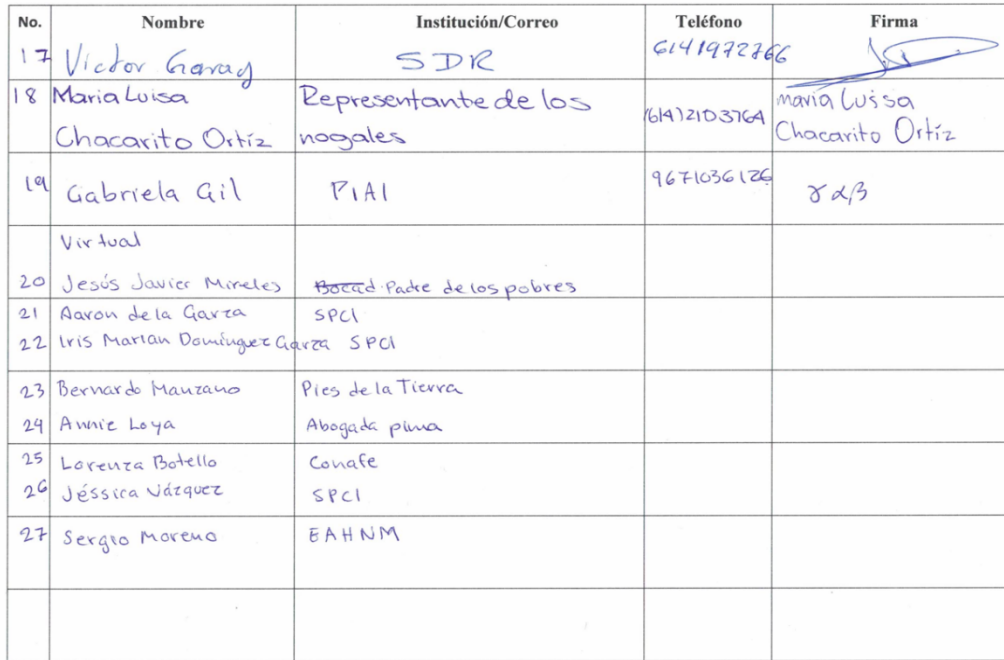 No. Nombre Institución/Correo Teléfono Firma
17 Victor Garay SDR 6141972766
18 Maria Luisa Chacarito Ortíz Representante de los nogales (614)2103764 maria Luisa Chacarito Ortíz
19 Gabriela Gil PIAI 9671036126 γαβ
Virtual
20 Jesús Javier Mireles Bocad. Padre de los pobres
21 Aaron de la Garza SPCI
22 Iris Marian Domínguez Garza SPCI
23 Bernardo Manzano Pies de la Tierra
24 Annie Loya Abogada pima
25 Lorenza Botello Conafe
26 Jéssica Vázquez SPCI
27 Sergio Moreno EAHNM